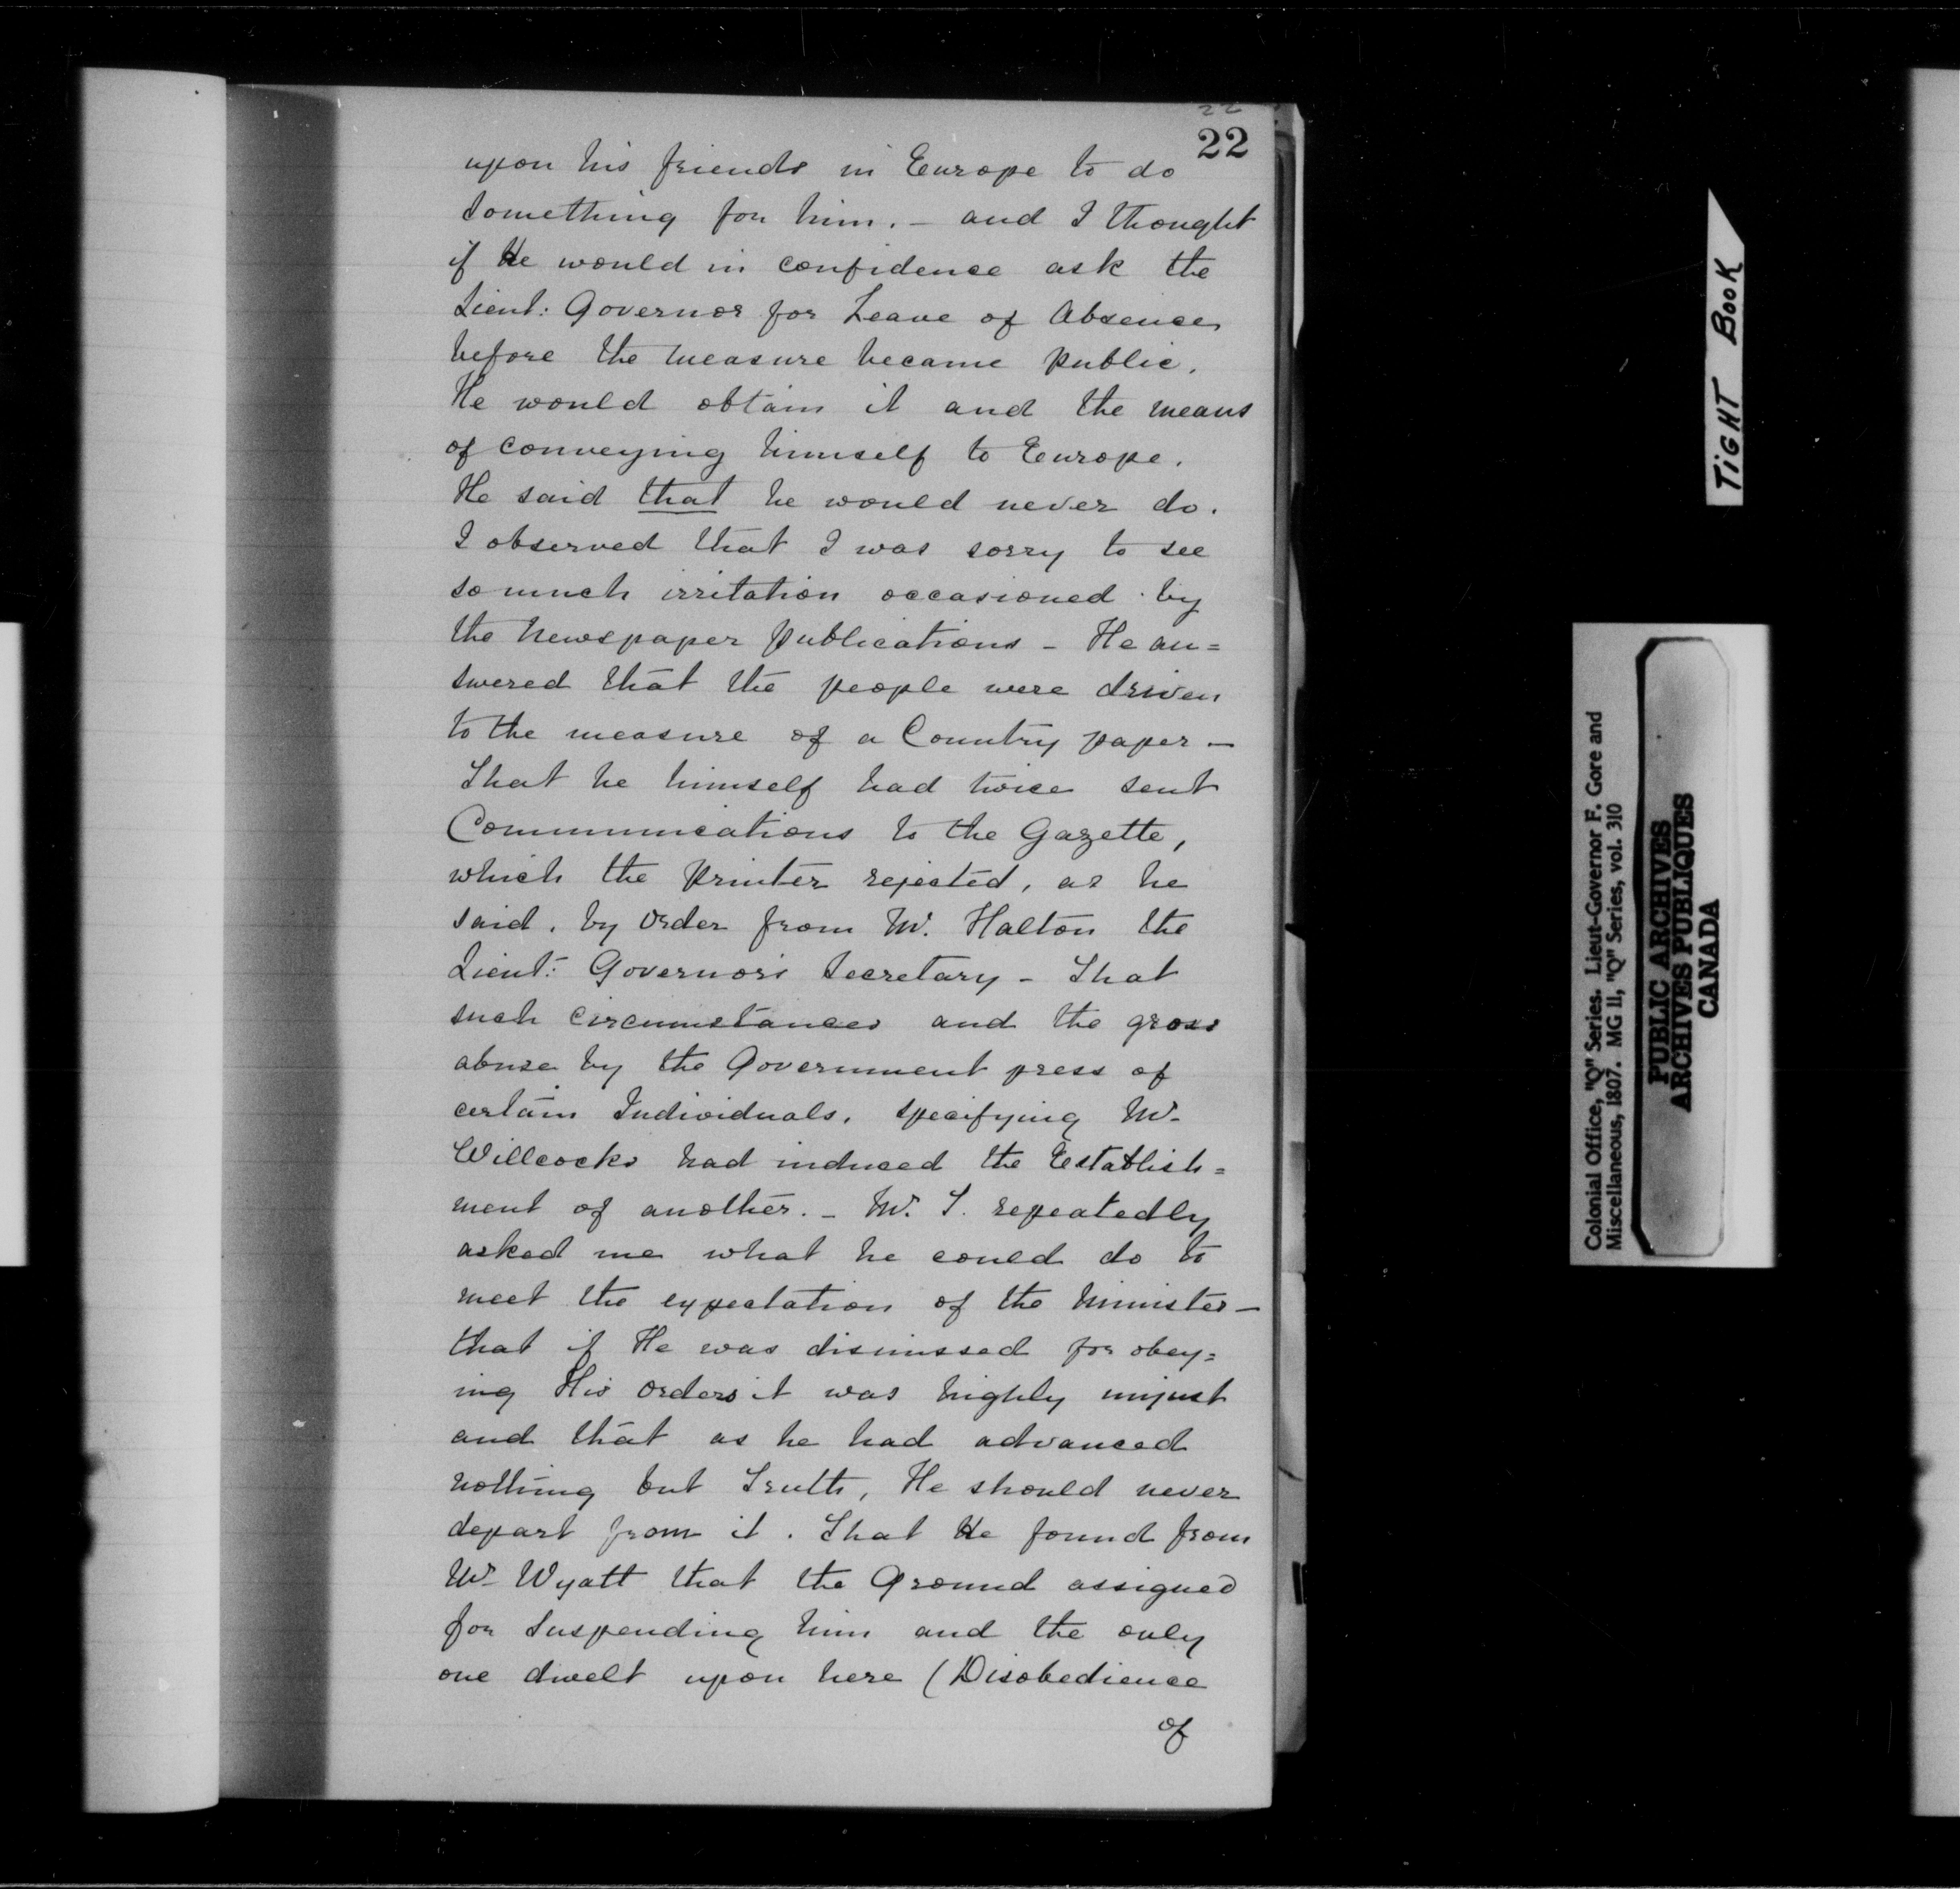 22
22
upon his friends in Europe to do
something for him. – and I thought
if He would in confidence ask the
Lieut: Governor for Leave of Absence
before the measure became public.
He would obtain it and the means
of conveying himself to Europe.
He said that he would never do.
I observed that I was sorry to see
so much irritation occasioned by
the Newspaper publications – He an=
swered that the people were driven
to the measure of a Country paper –
That he himself had twice sent
Communications to the Gazette,
which the Printer rejected, as he
said, by order from Mr. Halton the
Lieut: Governors Secretary – That
such circumstances and the gross
abuse by the Government press of
certain Individuals, specifying Mr.
Willcocks had induced the Establish=
ment of another. – Mr. T. repeatedly
asked me what he could do to
meet the expectation of the Minister –
that if He was dismissed for obey=
ing His orders it was highly unjust
and that as he had advanced
nothing but Truth, He should never
depart from it. That He found from
Mr. Wyatt that the Ground assigned
for suspending him and the only
one dwelt upon here (Disobedience
of
TIGHT BOOK
Colonial Office, "Q" Series. Lieut-Governor F. Gore and
Miscellaneous, 1807. MG 11, "Q" Series, vol. 310
PUBLIC ARCHIVES
ARCHIVES PUBLIQUES
CANADA